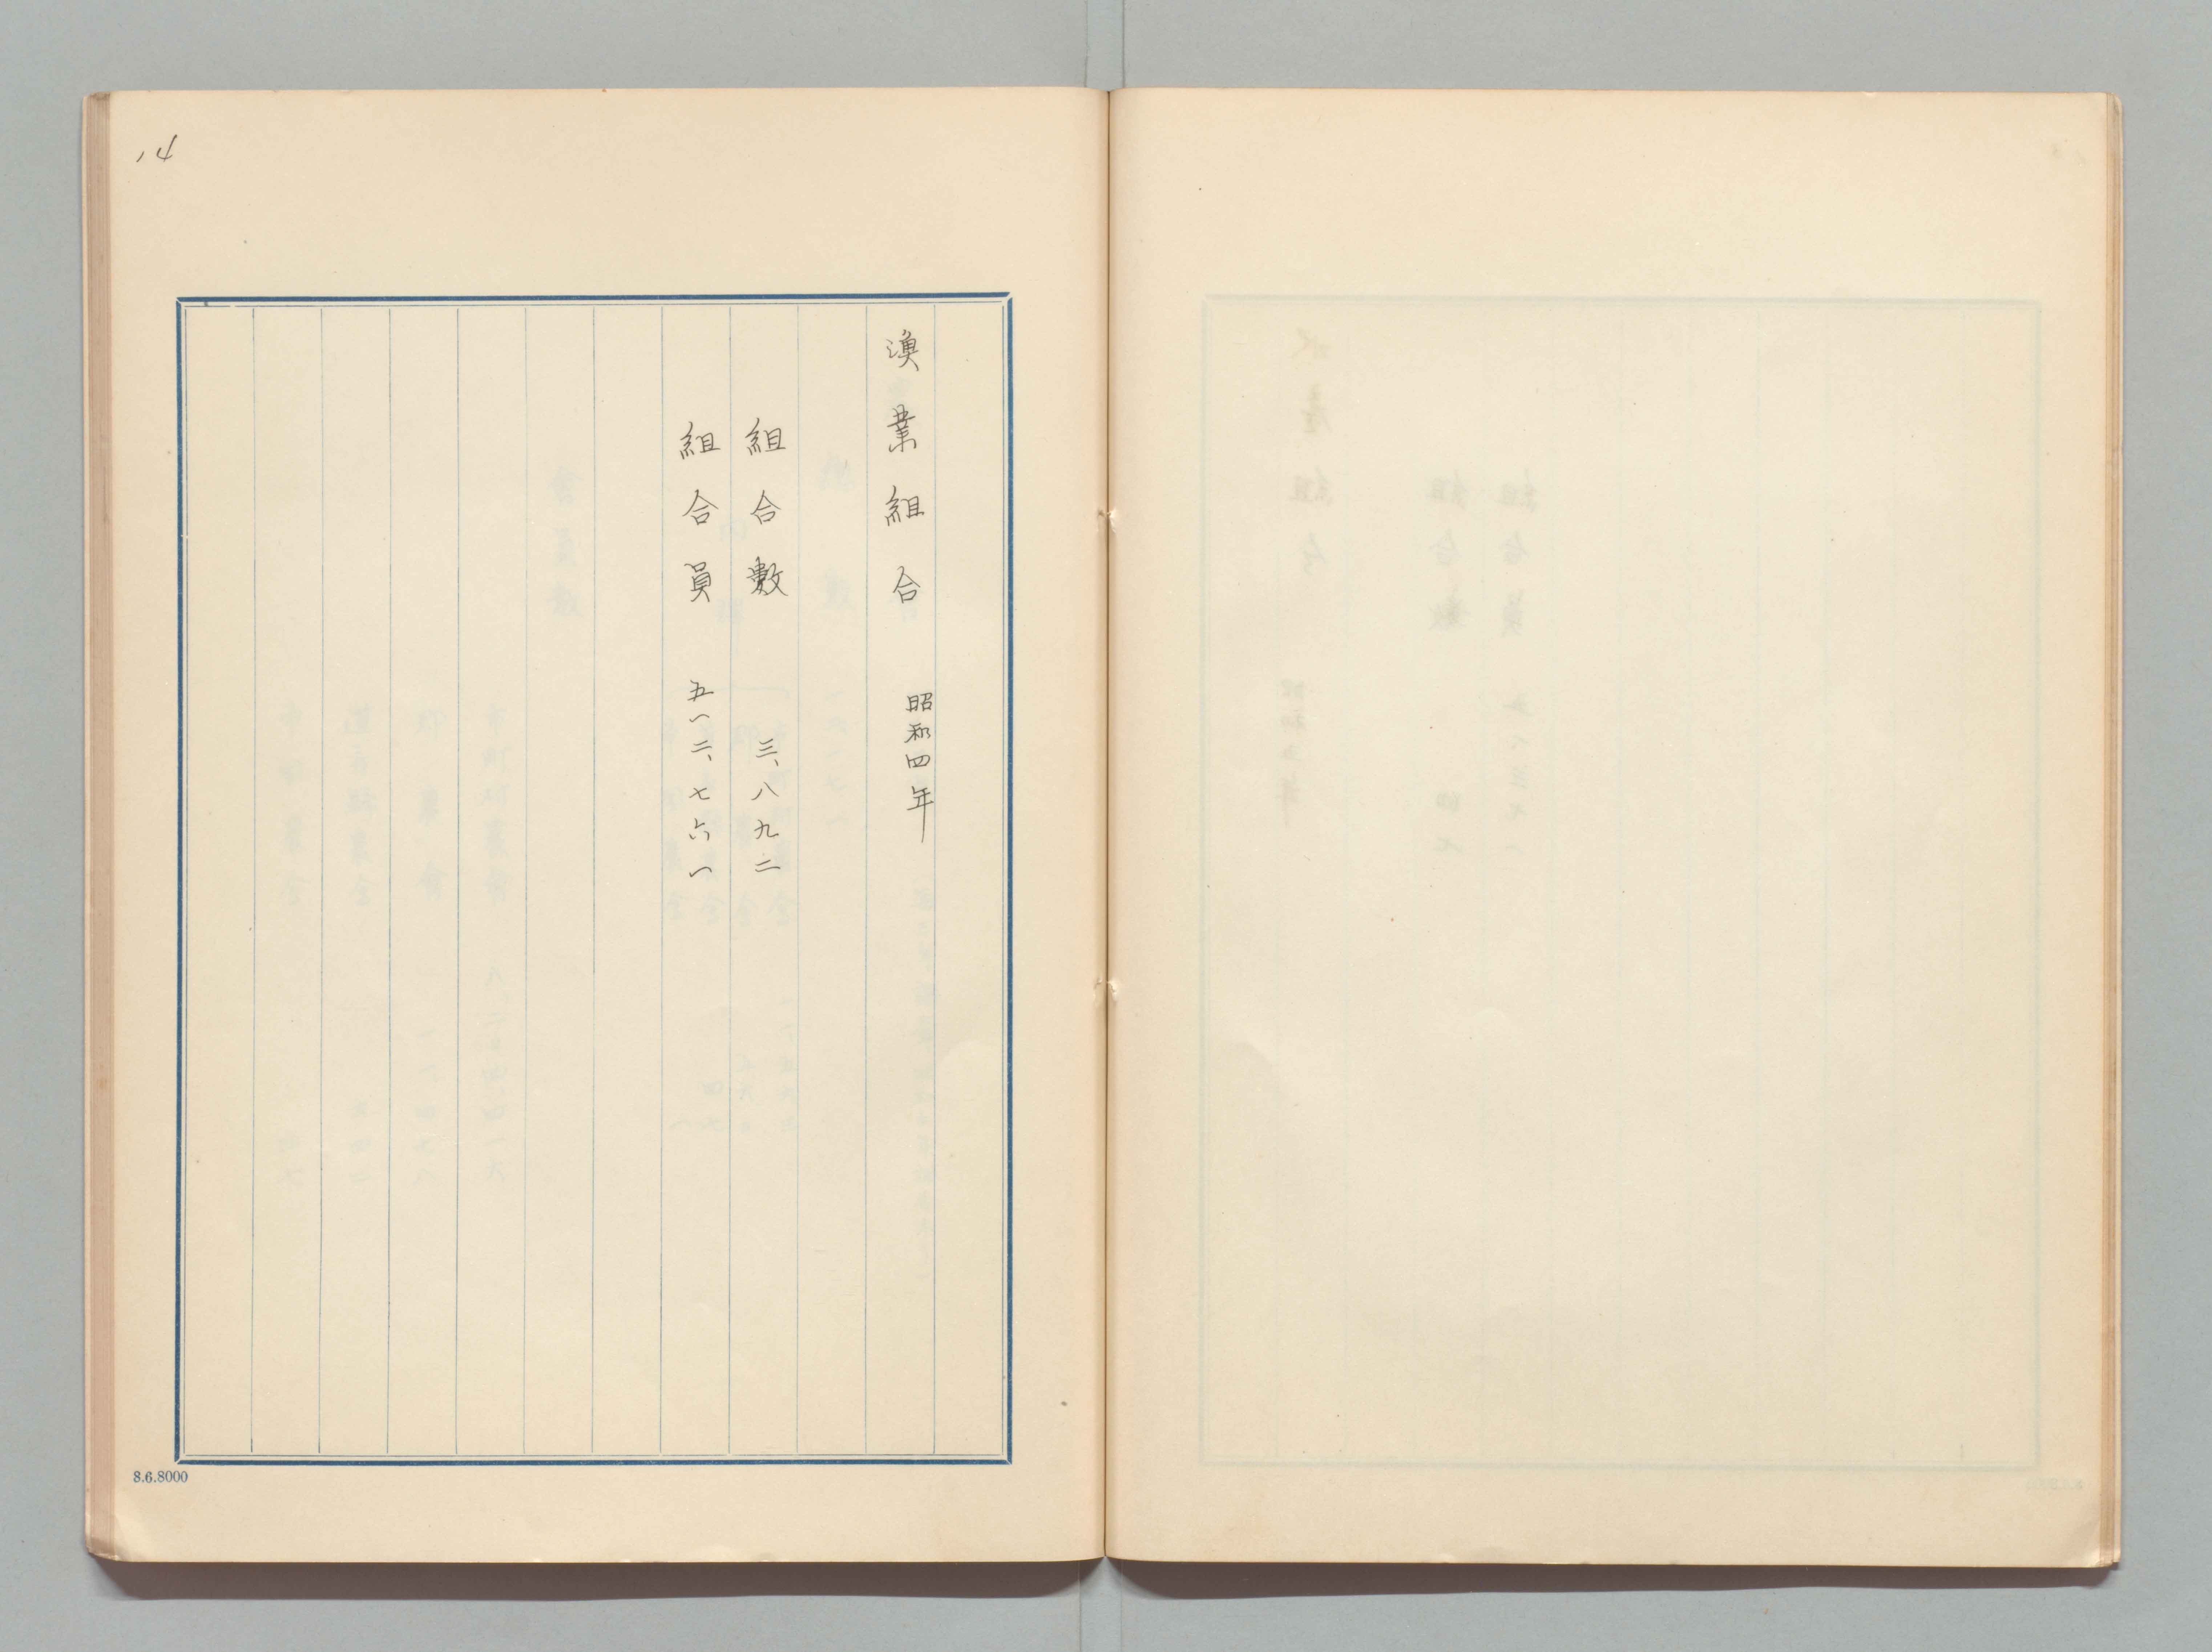 14
漁業組合 昭和四年
組合數 三、八九二
組合員 五一二、七六一
8.6.8000